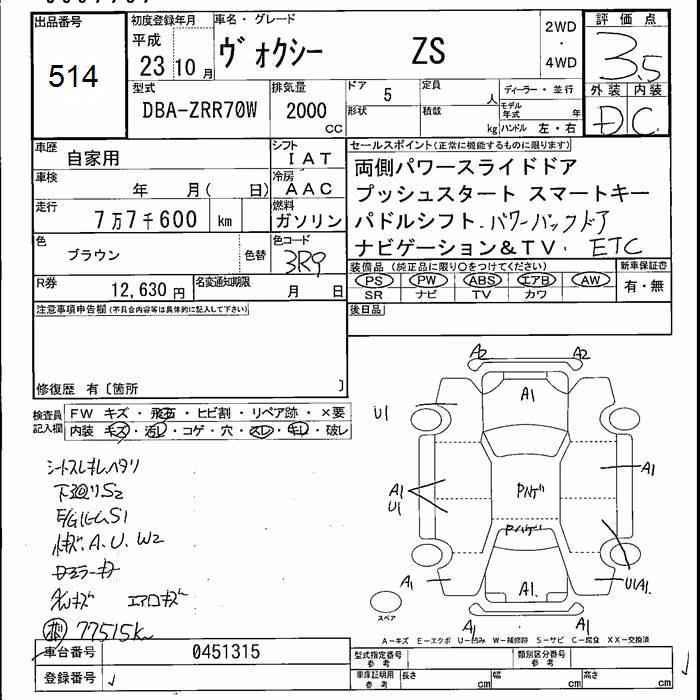 出品番号
514
初度登録年月
平成
23 10 月
車名・グレード
ヴォクシー ZS
2WD
・
4WD
評価点
3.5
外装 内装
D C
型式
DBA-ZRR70W
排気量
2000
CC
ドア 5
形状
定員 人
積載 kg
ディーラー・並行
モデル年式 年
ハンドル 左・右
車歴 自家用
シフト IAT
車検 年 月( 日)
冷房 AAC
走行 7万7千600 km
燃料 ガソリン
色 ブラウン
色替
色コード 3R9
R券 12,630 円
名変通知期限 月 日
セールスポイント(正常に機能するものに限ります)
両側パワースライドドア
プッシュスタート スマートキー
パドルシフト・パワーバックドア
ナビゲーション&TV・ETC
装備品(純正品に限り○をつけてください)
PS PW ABS エアB AW
SR ナビ TV カワ
新車保証書
有・無
注意事項申告欄(不具合内容等は具体的に記入して下さい)
後日品
修復歴 有〔箇所 〕
検査員記入欄
FW キズ・飛石・ヒビ割・リペア跡・×要
内装 キズ・汚レ・コゲ・穴・スレ・キレ・破レ
シートスレキレヘタリ
下廻りS2
E/GルームS1
A.U.W2
エアロキズ
77515km
A2 A2
A1
U1
A1
U1
A1
Pハゲ
Pハゲ
A1
A1
U1A1
A1 A1
スペア
A-キズ E-エクボ U-凹み W-補修跡 S-サビ C-腐食 XX-交換済
車台番号 0451315
登録番号
型式指定番号
参考
類別区分番号
参考
車庫証明用
参考
長さ cm 幅 cm 高さ cm